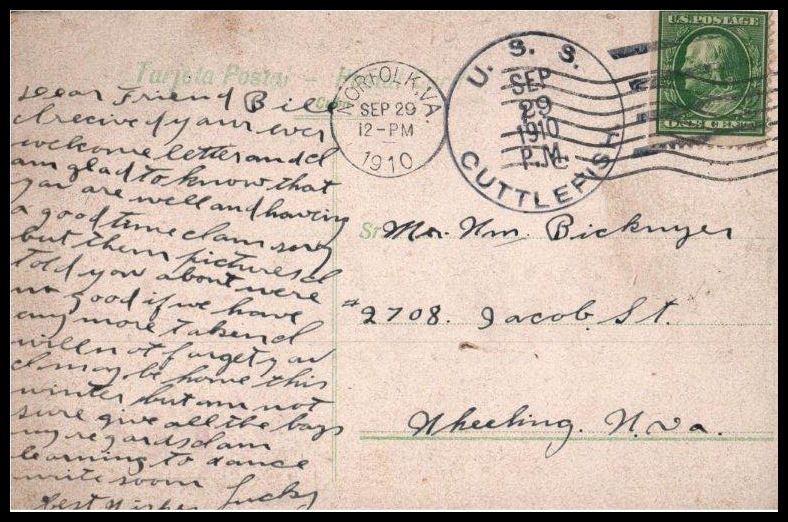 Tarjeta Postal –
Dear Friend Bill
I recived your ever
welcome letter and I
am glad to know that
you are well and having
a good time I am sorry
but them pictures I
told you about were
no good if we have
any more taken I
will not forget you
I may be home this
winter but am not
sure give all the boys
my regards I am
learning to dance
write soon
Best Wishes Lucky
NORFOLK, VA.
SEP 29
12-PM
1910
U. S. S.
SEP
29
1910
P.M.
CUTTLEFISH
U.S. POSTAGE
Sr.
Mr. Wm. Bickmyer
#2708. Jacob St.
Wheeling. W. Va.